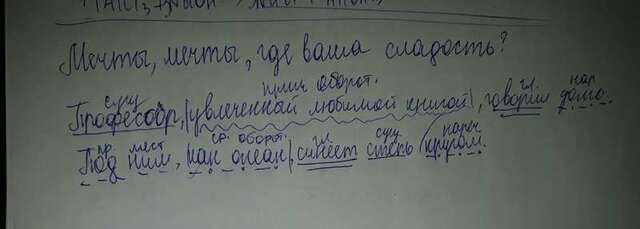 Мечты, мечты, где ваша сладость?
прич оборот.
сущ гл. нар
Професоор, (увлеченный любимой книгой), говорил дома.
пр. мест ср. оборот. гл сущ нареч
Под ним, (как океан), синеет степь кругом.